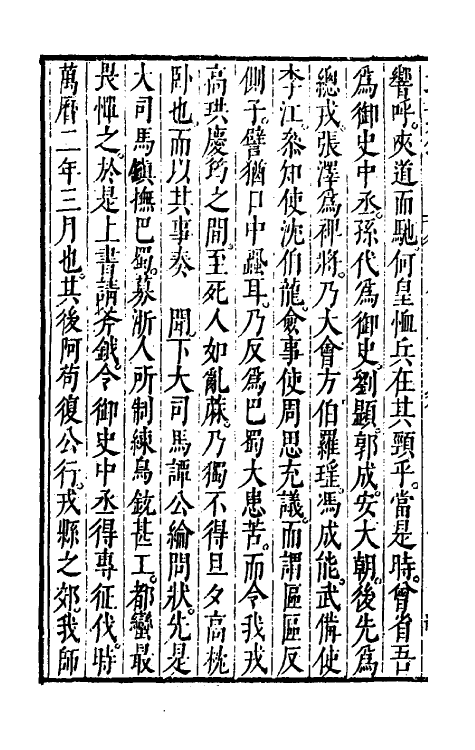 響呼。夾道而馳。何皇恤兵在其頸乎。當是時。曾省吾
爲御史中丞。孫代爲御史。劉顯。郭成。安大朝。後先爲
總戎。張澤爲裨將。乃大會方伯羅瑤。馮成能。武備使
李江。叅知使沈伯龍。僉事使周思充議。而謂區區反
側子。譬猶口中蝨耳。乃反爲巴蜀大患苦。而令我戎
高珙慶筠之間。至死人如亂蔴。乃獨不得旦夕高枕
卧也。而以其事奏　聞。下大司馬譚公綸問狀。先是
大司馬鎮撫巴蜀。募浙人所制練鳥銃甚工。都蠻最
畏憚之。於是上書請斧鉞。令御史中丞得專征伐。時
萬曆二年三月也。其後阿苟復公行。戎縣之郊。我師